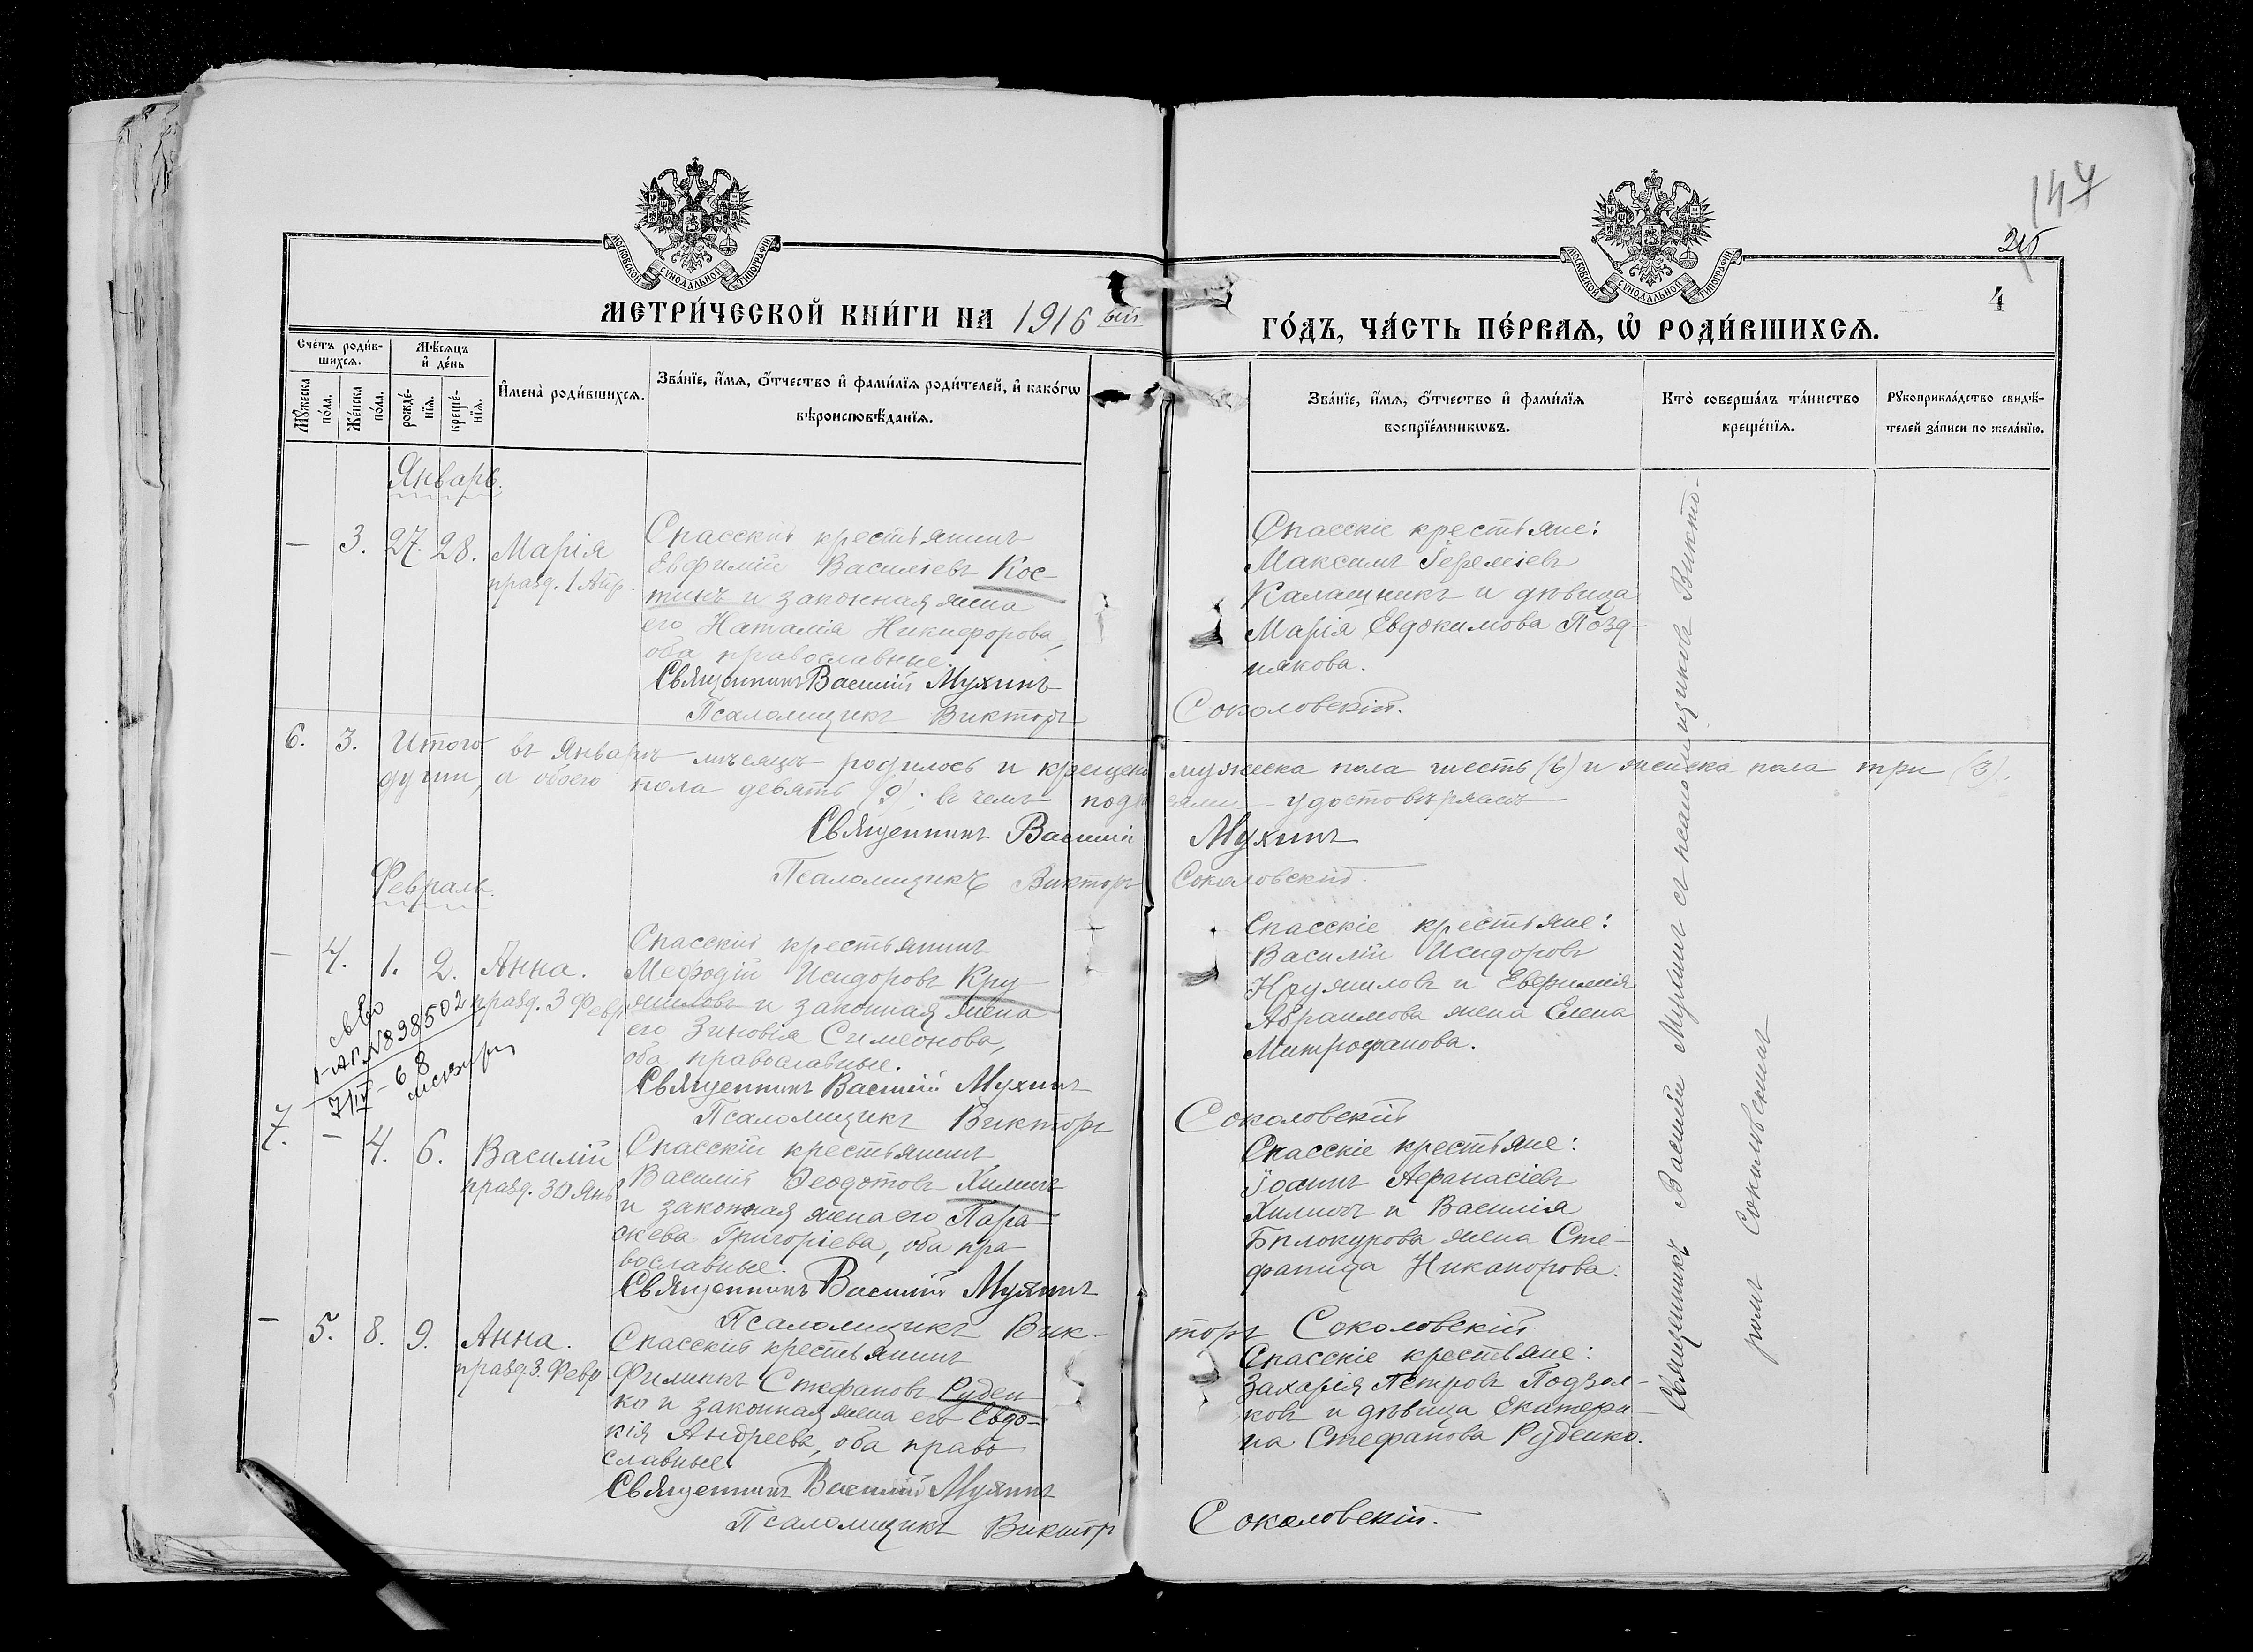 147
215
4
МОСКОВСКОЙ СѴНОДАЛЬНОЙ ТИПОГРАФІИ
МОСКОВСКОЙ СѴНОДАЛЬНОЙ ТИПОГРАФІИ
МЕТРИ́ЧЕСКОЙ КНИ́ГИ НА 1916 ый
ГО́ДЪ, ЧА́СТЬ ПЕ́РВАЯ, Ѡ҆ РОДИ́ВШИХСЯ.
Сче́тъ роди́в-
шихся.
Мѣ́сяцъ
и҆ де́нь
Мꙋ́жеска
по́ла.
Же́нска
по́ла.
рожде́-
нїя.
креще́-
нїя.
И҆мена̀ роди́вшихся.
Зва́нїе, и҆́мя, ѻ҆́тчество и҆ фами́лїя роди́телей, и҆ како́гѡ
вѣроисповѣ́данїя.
Зва́нїе, и҆́мя, ѻ҆́тчество и҆ фами́лїя
воспрїе́мникѡвъ.
Кто̀ соверша́лъ та́инство
креще́нїя.
Рꙋкоприкла́дство свидѣ́-
телей за́писи по жела́нїю.
Январь.
— 3. 27. 28. Марія
празд. 1 Апр.
Спасскій крестьянинъ
Евфимій Василіевъ Кос-
тинъ и законная жена
его Наталія Никифорова,
оба православные.
Священникъ Василій Мухинъ
Псаломщикъ Викторъ Соколовскій.
Спасскіе крестьяне:
Максимъ Іереміевъ
Калашникъ и дѣвица
Марія Евдокимова Позд-
някова.
6. 3. Итого въ Январѣ мѣсяцѣ родилось и крещено мужеска пола шесть (6) и женска пола три (3).
души, а обоего пола девять (9); въ чемъ подписями удостовѣряемъ
Священникъ Василій Мухинъ
Псаломщикъ Викторъ Соколовскій.
Февраль.
— 4. 1. 2. Анна.
празд. 3 Февр
Спасскій крестьянинъ
Мефодій Исидоровъ Кру-
жиловъ и законная жена
его Зиновія Симеонова,
оба православные.
Священникъ Василій Мухинъ
Псаломщикъ Викторъ Соколовскій
Спасскіе крестьяне:
Василій Исидоровъ
Кружиловъ и Евфимія
Абраимова жена Елена
Митрофанова.
№898502
7/IV - 68
7. — 4. 6. Василій
празд. 30 Янв
Спасскій крестьянинъ
Василій Ѳеодотовъ Химичъ
и законная жена его Пара-
скева Григоріева, оба пра-
вославные.
Священникъ Василій Мухинъ
Псаломщикъ Вик-
торъ Соколовскій
Спасскіе крестьяне:
Іоаннъ Аѳанасіевъ
Химичъ и Василія
Бѣлокурова жена Сте-
фанида Никанорова.
— 5. 8. 9. Анна.
празд. 3. Февр
Спасскій крестьянинъ
Филиппъ Стефановъ Руден-
ко и законная жена его Евдо-
кія Андреева, оба право-
славные.
Священникъ Василій Мухинъ
Псаломщикъ Викторъ Соколовскій.
Спасскіе крестьяне:
Захарія Петровъ Подзол-
ковъ и дѣвица Екатери-
на Стефанова Руденко.
Священникъ Василій Мухинъ съ псаломщикомъ Викто-
ромъ Соколовскимъ